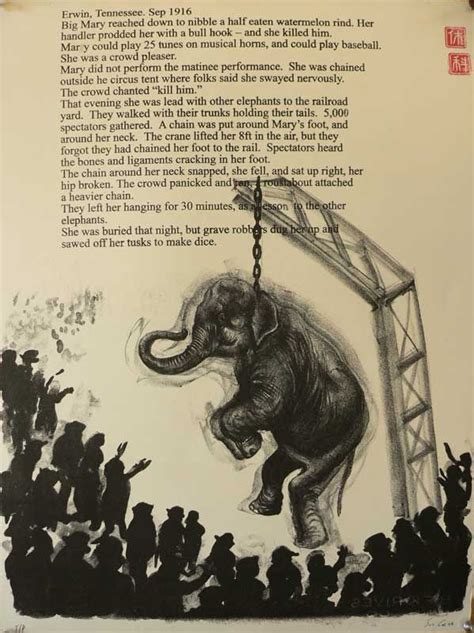 Erwin, Tennessee. Sep 1916
Big Mary reached down to nibble a half eaten watermelon rind. Her
handler prodded her with a bull hook – and she killed him.
Mary could play 25 tunes on musical horns, and could play baseball.
She was a crowd pleaser.
Mary did not perform the matinee performance. She was chained
outside he circus tent where folks said she swayed nervously.
The crowd chanted "kill him."
That evening she was lead with other elephants to the railroad
yard. They walked with their trunks holding their tails. 5,000
spectators gathered. A chain was put around Mary's foot, and
around her neck. The crane lifted her 8ft in the air, but they
forgot they had chained her foot to the rail. Spectators heard
the bones and ligaments cracking in her foot.
The chain around her neck snapped, she fell, and sat up right, her
hip broken. The crowd panicked and ran, a roustabout attached
a heavier chain.
They left her hanging for 30 minutes, as a lesson to the other
elephants.
She was buried that night, but grave robbers dug her up and
sawed off her tusks to make dice.
休
科